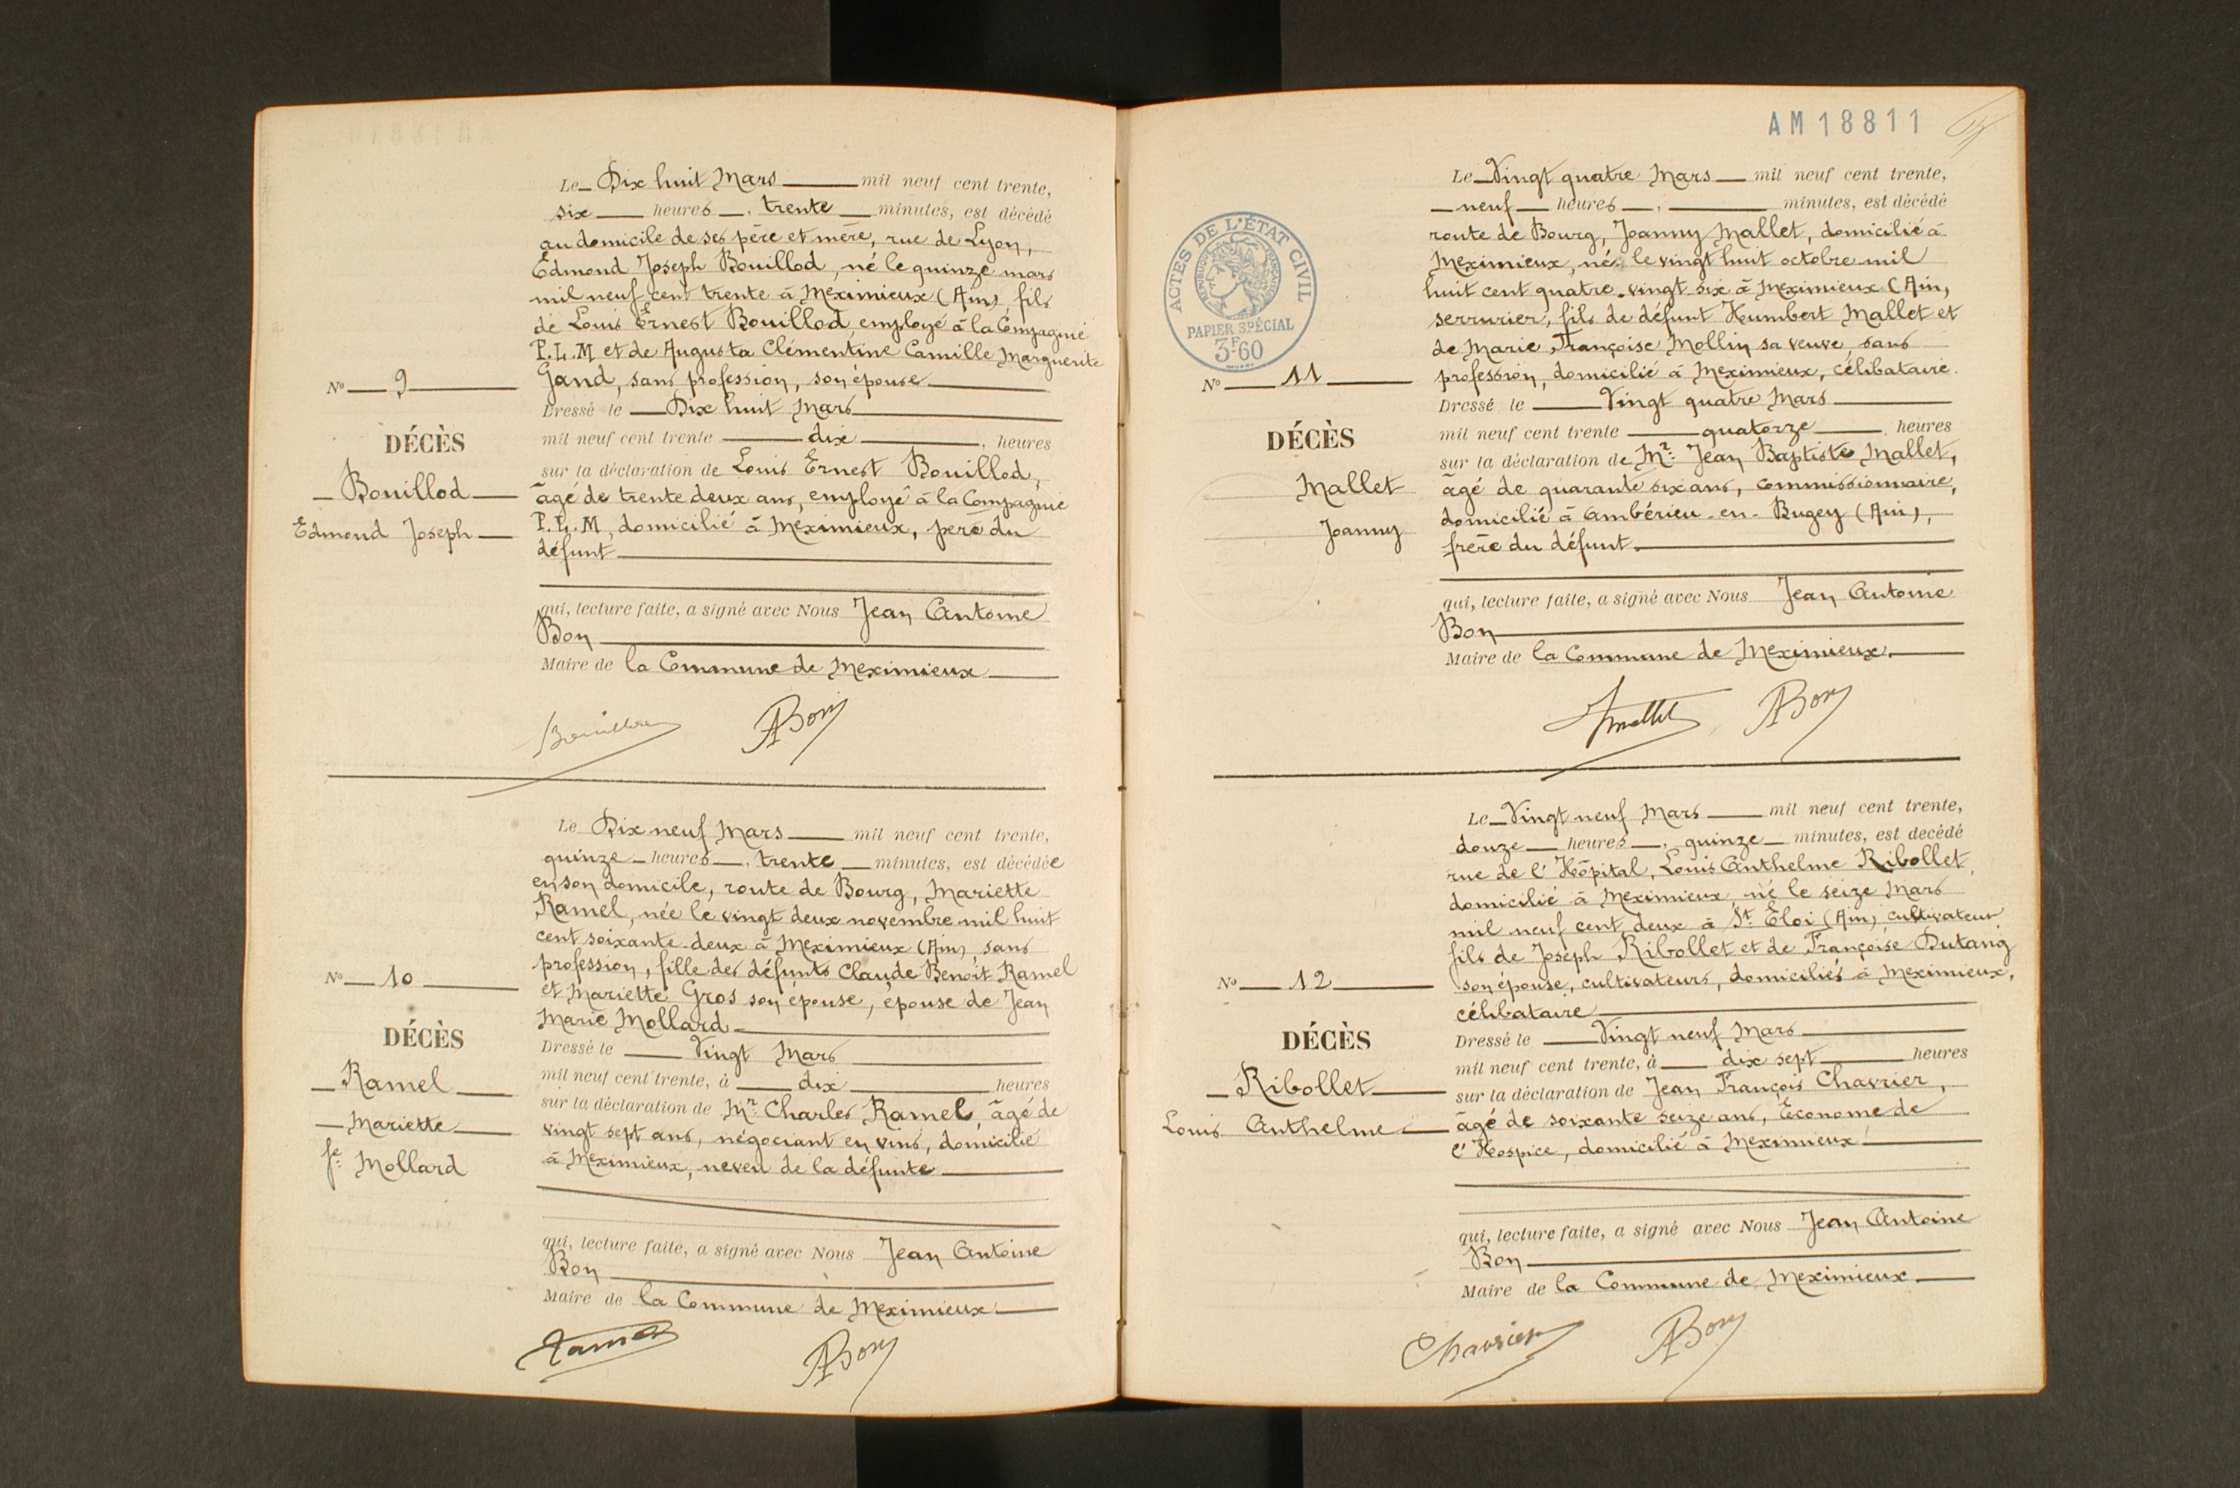 Le Dix huit Mars mil neuf cent trente,
six heures, trente minutes, est décédé
au domicile de ses père et mère, rue de Lyon,
Edmond Joseph Bouillod, né le quinze mars
mil neuf cent trente à Meximieux (Ain) fils
de Louis Ernest Bouillod, employé à la Compagnie
P.L.M et de Augusta Clémentine Camille Marguerite
Gand, sans profession, son épouse
Dressé le Dix huit Mars
mil neuf cent trente dix, heures
sur la déclaration de Louis Ernest Bouillod,
âgé de trente deux ans, employé à la Compagnie
P.L.M, domicilié à Meximieux, père du
défunt
qui, lecture faite, a signé avec Nous Jean Antoine
Bon
Maire de la Commune de Meximieux
No 9
DÉCÈS
Bouillod
Edmond Joseph
Bouillod ABon
Le Dix neuf Mars mil neuf cent trente,
quinze heures, trente minutes, est décédée
en son domicile, route de Bourg, Mariette
Ramel, née le vingt deux novembre mil huit
cent soixante-deux à Meximieux (Ain), sans
profession, fille des défunts Claude Benoit Ramel
et Mariette Gros son épouse, épouse de Jean
Marie Mollard
Dressé le Vingt Mars
mil neuf cent trente, à dix heures
sur la déclaration de Mr. Charles Ramel, âgé de
vingt sept ans, négociant en vins, domicilié
à Meximieux, neveu de la défunte
qui, lecture faite, a signé avec Nous Jean Antoine
Bon
Maire de la Commune de Meximieux
No 10
DÉCÈS
Ramel
Mariette
fe. Mollard
Ramel ABon
AM18811
ACTES DE L'ÉTAT CIVIL
RÉPUBLIQUE FRANÇAISE
PAPIER SPÉCIAL
3F60
Le Vingt quatre Mars mil neuf cent trente,
neuf heures, minutes, est décédé
route de Bourg, Joanny Mallet, domicilié à
Meximieux, né le vingt huit octobre mil
huit cent quatre-vingt six à Meximieux (Ain,
serrurier, fils de défunt Humbert Mallet et
de Marie Françoise Mollin sa veuve, sans
profession, domicilié à Meximieux, célibataire.
Dressé le Vingt quatre Mars
mil neuf cent trente quatorze, heures
sur la déclaration de Mr. Jean Baptiste Mallet,
âgé de quarante six ans, commissionnaire,
domicilié à Ambérieu-en-Bugey (Ain),
frère du défunt.
qui, lecture faite, a signé avec Nous Jean Antoine
Bon
Maire de la Commune de Meximieux.
No 11
DÉCÈS
Mallet
Joanny
Mallet ABon
Le Vingt neuf Mars mil neuf cent trente,
douze heures, quinze minutes, est decédé
rue de l'Hôpital, Louis Anthelme Ribollet,
domicilié à Meximieux, né le seize Mars
mil neuf cent deux à St. Eloi (Ain), cultivateur
fils de Joseph Ribollet et de Françoise Dutang
son épouse, cultivateurs, domiciliés à Meximieux,
célibataire
Dressé le Vingt neuf Mars
mil neuf cent trente, à dix sept heures
sur la déclaration de Jean François Chavrier,
âgé de soixante seize ans, Econome de
l'Hospice, domicilié à Meximieux
qui, lecture faite, a signé avec Nous Jean Antoine
Bon
Maire de la Commune de Meximieux
No 12
DÉCÈS
Ribollet
Louis Anthelme
Chavrier ABon